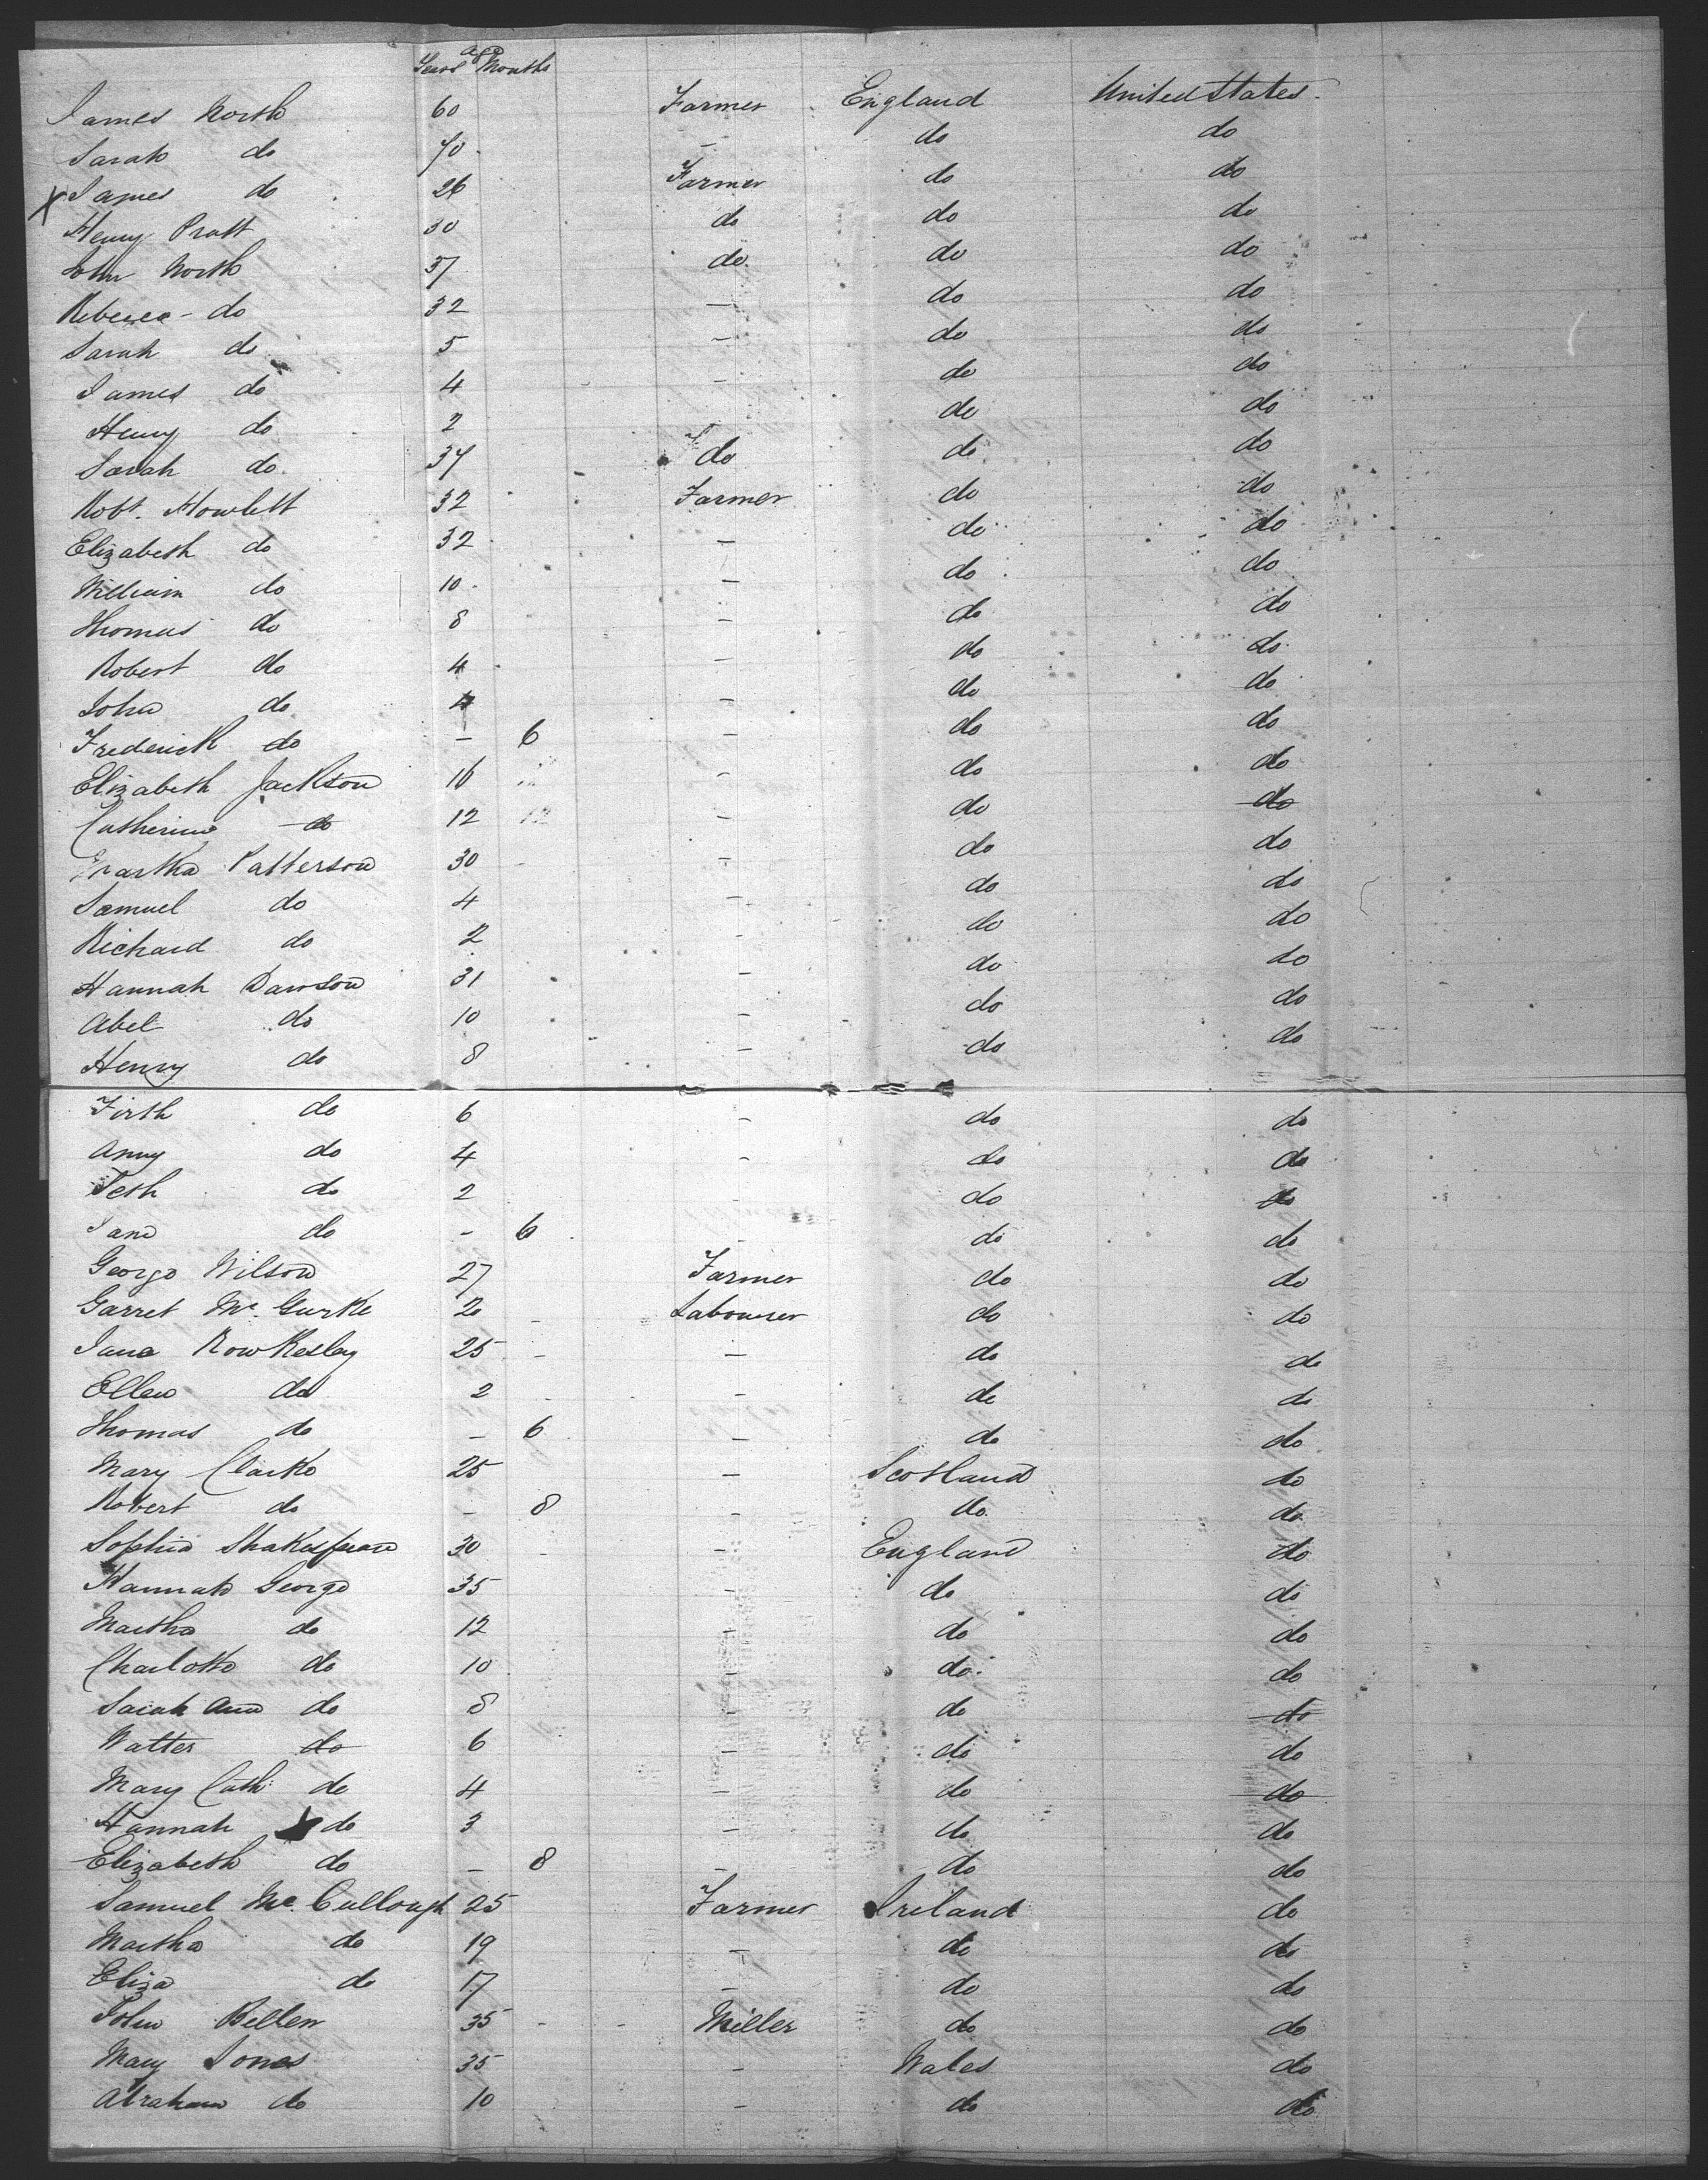 Age
Years Months
James North 60 Farmer England United States
Sarah do 70 - do do
X James do 26 Farmer do do
Henry Pratt 30 do do do
John North 37 do do do
Rebecca do 32 - do do
Sarah do 5 - do do
James do 4 - do do
Henry do 2 do do
Sarah do 34 do do do
Robt. Howlett 32 Farmer do do
Elizabeth do 32 - do do
William do 10 - do do
Thomas do 8 - do do
Robert do 4 - do do
John do - do do
Frederick do - 6 - do do
Elizabeth Jackson 16 - do do
Catherine do 12 - do do
Martha Patterson 30 - do do
Samuel do 4 - do do
Richard do 2 - do do
Hannah Dawson 31 - do do
Abel do 10 - do do
Henry do 8 - do do
Firth do 6 - do do
Amy do 4 - do do
Seth do 2 - do do
Jane do - 6 - do do
George Wilson 27 Farmer do do
Garret Mc. Gurke 20 - Labourer do do
Jane Rowkesley 25 - - do do
Ellen do 2 - - do do
Thomas do - 6 - do do
Mary Clarke 25 - Scotland do
Robert do - 8 - do do
Sophia Shakespeare 30 - - England do
Hannah George 35 - do do
Martha do 12 - do do
Charlotte do 10 - do do
Sarah Ann do 8 - do do
Walter do 6 - do do
Mary Cath: do 4 - do do
Hannah do 3 - do do
Elizabeth do - 8 - do do
Samuel Mc Cullough 25 Farmer Ireland do
Martha do 19 - do do
Eliza do 17 - do do
John 35 - - Miller do do
Mary Jones 35 - Wales do
Abraham do 10 - do do